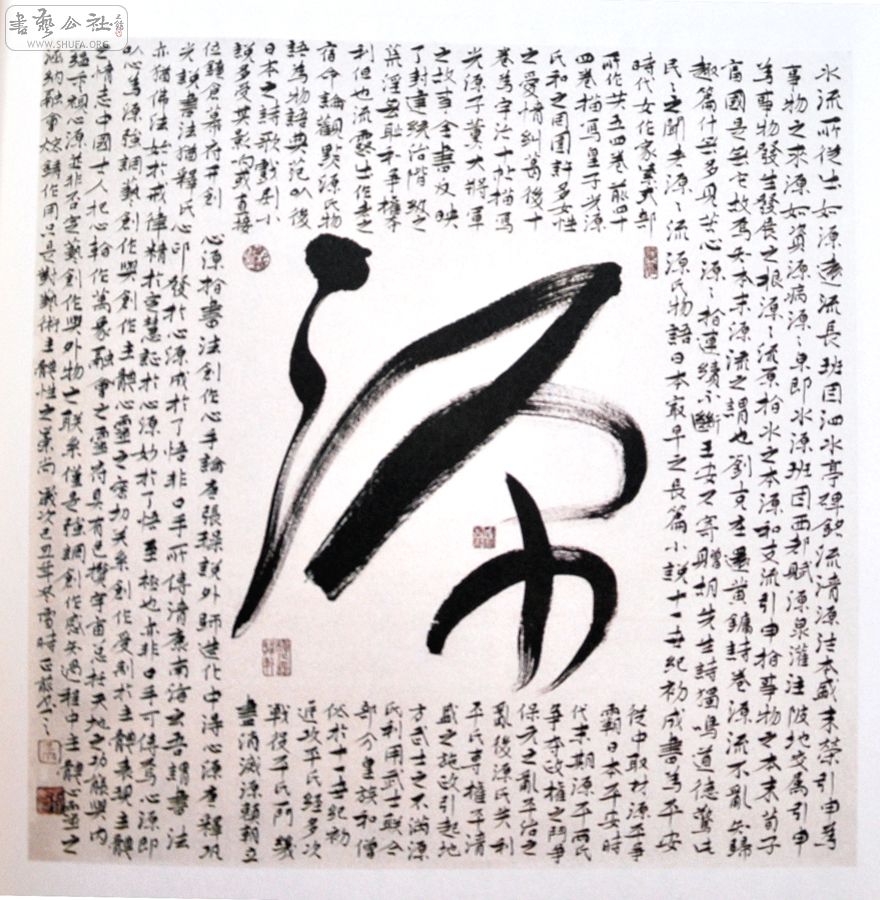 書藝公社
WWW.SHUFA.ORG
水流所從出如源遠流長班固泗水亭碑銘流清源洁本盛末榮引申為
事物之來源如資源病源〻泉即水源班固西都賦源泉灌注陂地交属引申
為事物發生發展之根源〻流原指水之本源和支流引申指事物之本末荀子
富國是無它故焉知本末源流之謂也劉克庄墨黄鏞詩卷源流不亂知歸
趣篇什無多見苦心源〻指連續不斷王安石寄贈胡先生詩獨鳴道德驚此
民〻之聞者源〻流源氏物語日本最早之長篇小說十一世紀初成書為平安
時代女作家紫式部
所作共五四卷前四十
四卷描寫皇子光源
氏和之周圍許多女性
之爱情糾葛後十
卷為宇治十帖描寫
光源子薫大將軍
之故事全書反映
了封建統治階級之
荒淫無耻和爭權夺
利但也流露出作者之
宿命論觀點源氏物
語為物語典范以後
日本之詩歌戲剧小
說多受其影响或直接
從中取材源平爭
霸日本平安時
代末期源平两氏
爭夺政權之鬥爭
保元之亂平治之
亂後源氏失利
平氏專權平清
盛之施政引起地
方武士之不满源
氏利用武士联合
部分皇族和僧
侶於十二世紀初
遂攻平氏經多次
戰役平氏一門幾
盡消滅源賴朝立
位鎌倉幕府开創
源
心源指書法創作心手論唐張璪說外師造化中得心源唐釋
光說書法猶釋氏心印發於心源成於了悟非口手所傳清康南海吾謂書法
亦猶佛法始於戒律精於定慧証於心源妙於了悟至極也亦非口手可傳焉心源即
以心為源強調藝創作與創作主體心靈之密切关系創作受制於主體表現主體
之情志中國士人把心斡作萬象融會之靈府具有包攬宇宙总括天地之功能與内
蕴亦視心源並非否定藝創作與外物之联系僅是強調創作感知過程中主體心靈之
涵納融會熔鑄作用只是對藝術主體性之崇尚 歲次己丑年冬雪時